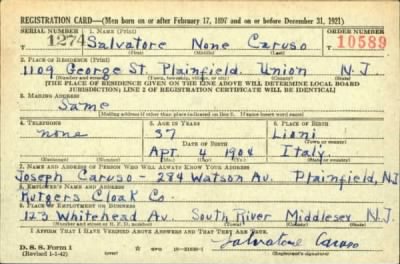 REGISTRATION CARD—(Men born on or after February 17, 1897 and on or before December 31, 1921)
SERIAL NUMBER 1. NAME (Print) ORDER NUMBER
T 1274 Salvatore None Caruso 10589
(First) (Middle) (Last)
2. PLACE OF RESIDENCE (Print)
1109 George St. Plainfield Union N.J.
(Number and street) (Town, township, village, or city) (County) (State)
[THE PLACE OF RESIDENCE GIVEN ON THE LINE ABOVE WILL DETERMINE LOCAL BOARD
JURISDICTION; LINE 2 OF REGISTRATION CERTIFICATE WILL BE IDENTICAL]
3. MAILING ADDRESS
Same
(Mailing address if other than place indicated on line 2. If same insert word same)
4. TELEPHONE 5. AGE IN YEARS 6. PLACE OF BIRTH
none 37 Lioni
DATE OF BIRTH (Town or county)
Apt. 4 1904 Italy
(Exchange) (Number) (Mo.) (Day) (Yr.) (State or country)
7. NAME AND ADDRESS OF PERSON WHO WILL ALWAYS KNOW YOUR ADDRESS
Joseph Caruso - 284 Watson Av. Plainfield, NJ
8. EMPLOYER'S NAME AND ADDRESS
Rutgers Cloak Co.
9. PLACE OF EMPLOYMENT OR BUSINESS
123 Whitehead Av. South River Middlesex N.J.
(Number and street or R. F. D. number) (Town) (County) (State)
I AFFIRM THAT I HAVE VERIFIED ABOVE ANSWERS AND THAT THEY ARE TRUE.
D. S. S. Form 1
(Revised 1-1-42) (over) Salvatore Caruso
(Registrant's signature)